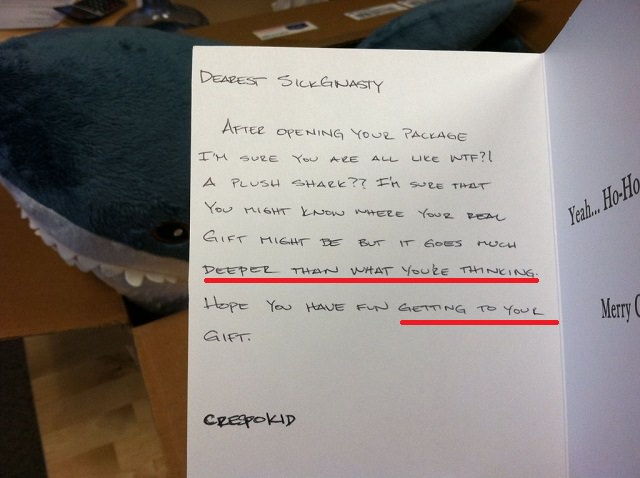 Dearest SickGnasty
After opening your package
I'm sure you are all like WTF?!
A plush shark?? I'm sure that
you might know where your real
gift might be but it goes much
deeper than what you're thinking.
Hope you have fun getting to your
gift.
CRESPOKID
Yeah... Ho-Ho
Merry